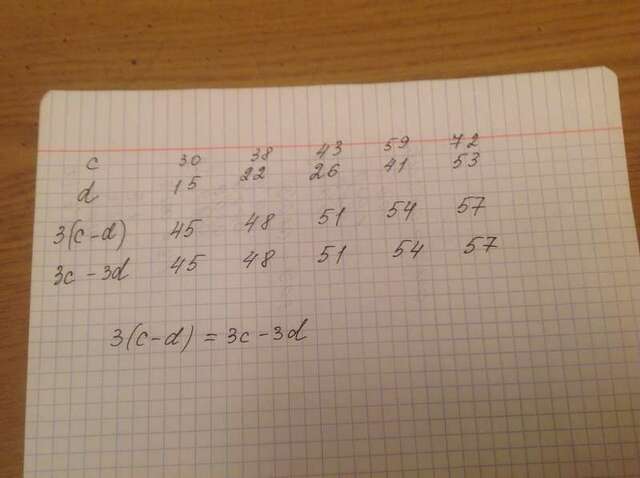 c 30 38 43 59 72
d 15 22 26 41 53
3(c-d) 45 48 51 54 57
3c-3d 45 48 51 54 57
3(c-d) = 3c-3d